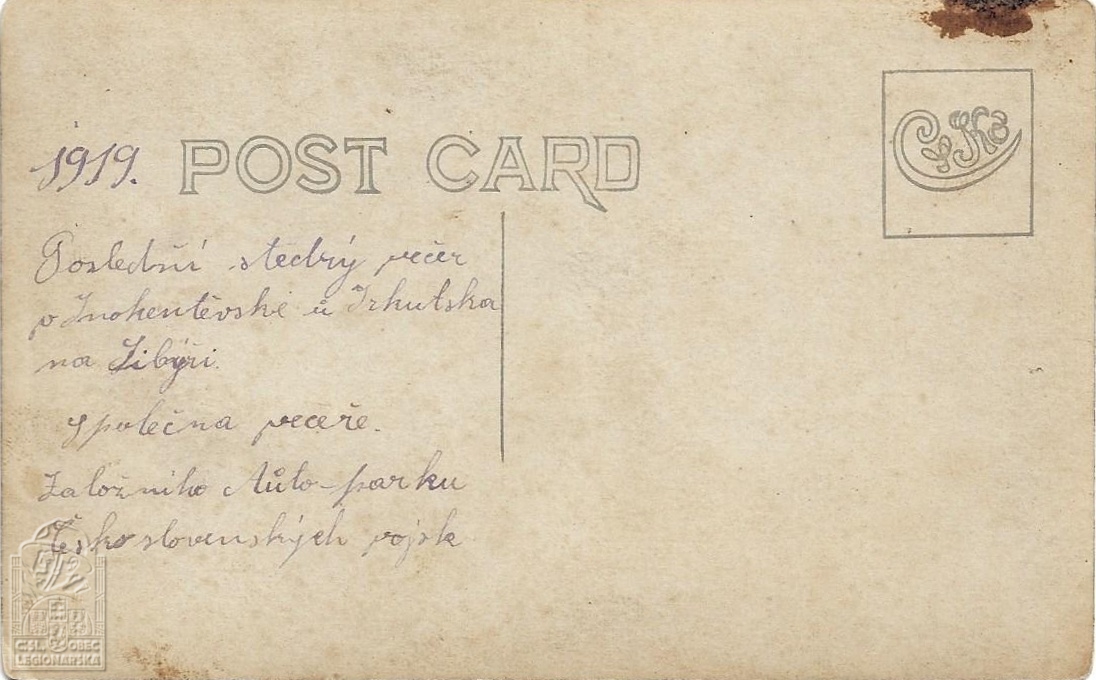 1919.
POST CARD
CyKo
Poslední stedrý večer
v Inokentěvské ů Irkutska
na Sibýři.
Společna večeře.
Založniho Aůto-parku
Československých vojsk
ČSL. OBEC
LEGIONÁŘSKÁ